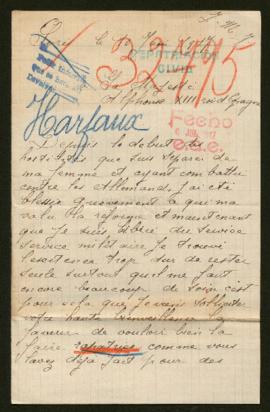 J. M. J
32475
REPATRIACION
CIVIL
Sa Majesté
Alphonse XIII roi d'Espagne
Fecho
Harfaux
Depuis le début des
hostilités que suis séparé de
ma femme et ayant combattu
contre les Allemands j'ai été
blessé gravement à qui m'a
valu la réforme et maintenant
que je suis libéré du service
Service militaire je trouve
l'existence trop dur de rester
seule surtout qu'il me faut
encore beaucoup de soin c'est
pour cela que je viens solliciter
votre haute bienveillance la
faveur de vouloir bien la
faire rapatrier comme vous
l'avez déjà fait pour des